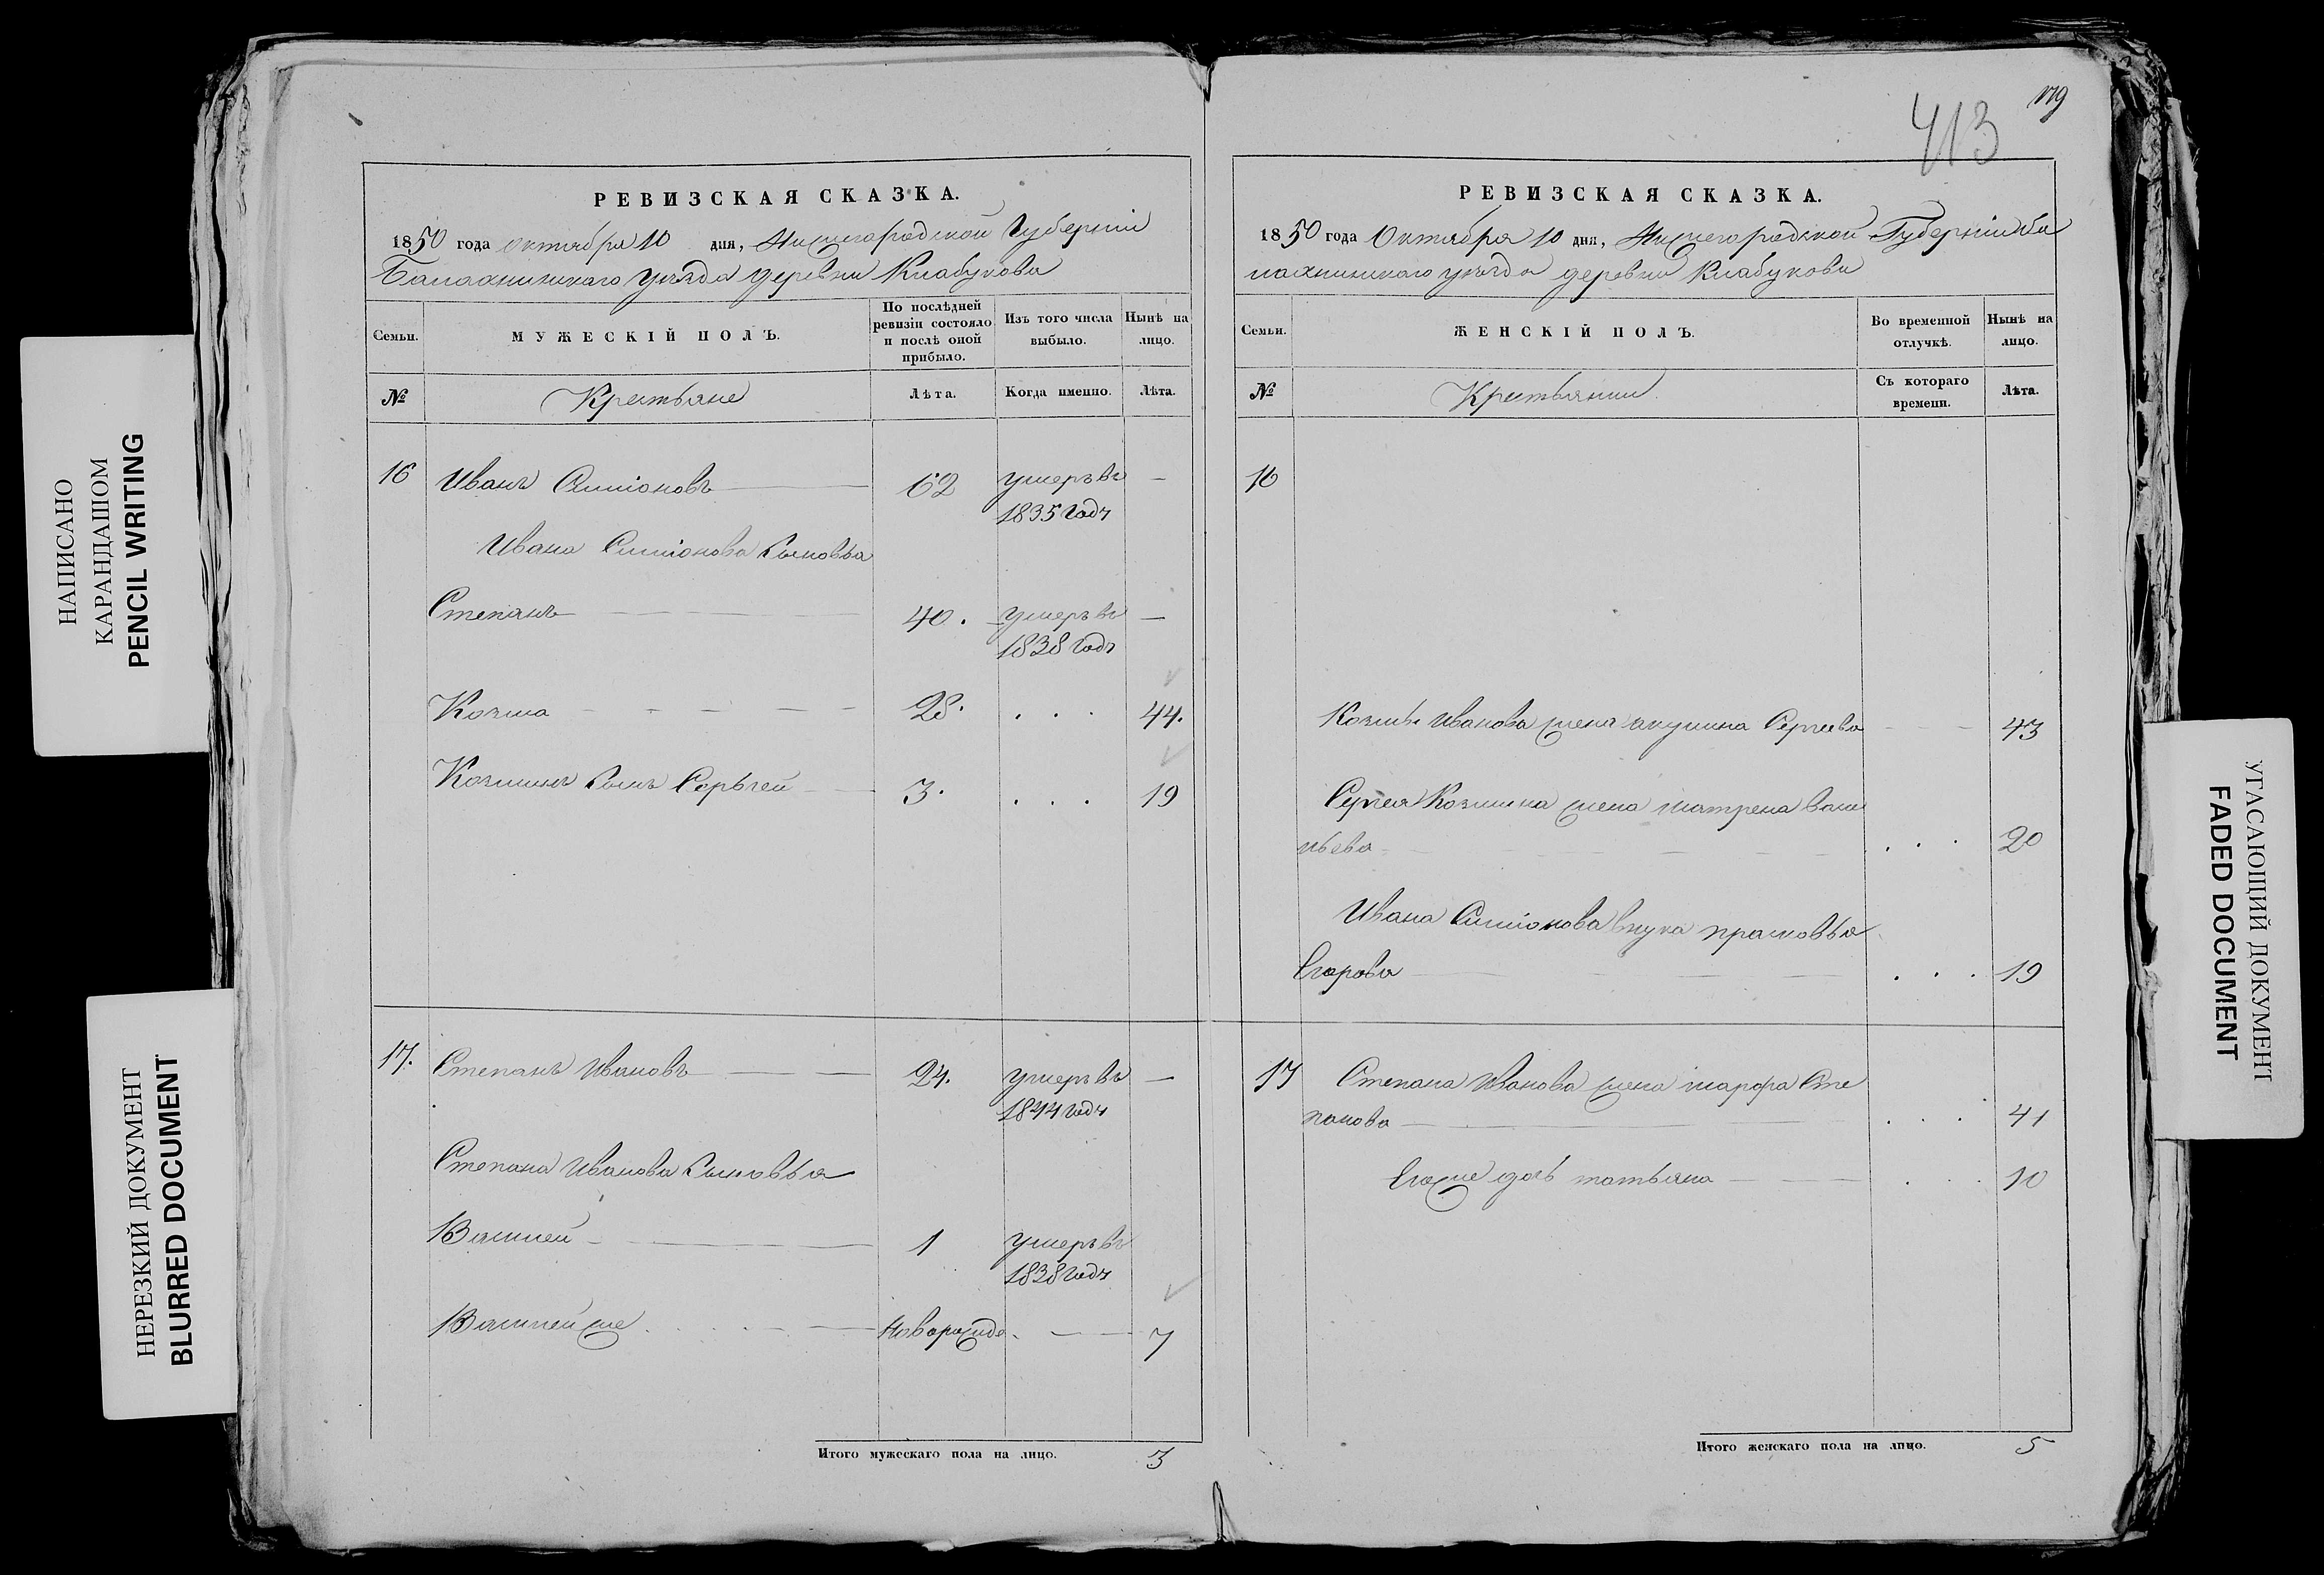 НАПИСАНО
КАРАНДАШОМ
PENCIL WRITING
НЕРЕЗКИЙ ДОКУМЕНТ
BLURRED DOCUMENT
РЕВИЗСКАЯ СКАЗКА.
1850 года Октября 10 дня, Нижегородской Губерніи
Балахнинскаго уѣзда деревни Клабукова
Семьи.
МУЖЕСКІЙ ПОЛЪ.
По послѣдней
ревизіи состояло
и послѣ оной
прибыло.
Изъ того числа
выбыло.
Нынѣ на
лицо.
№
Крестьяне
Лѣта.
Когда именно.
Лѣта.
16 Иванъ Симіоновъ 62 умеръ въ —
1835 годѣ
Ивана Симіонова сыновья
Степанъ 40. умеръ въ —
1838 годѣ
Козма 28. . . . 44.
Козминъ сынъ Серьгей 3. . . . 19
17. Степанъ Ивановъ 24. умеръ въ —
1844 годѣ
Степана Иванова сыновья
Василей 1 умеръ въ
1838 годѣ
Василей же Новорожде. 7
Итого мужескаго пола на лицо. 3
179
413
РЕВИЗСКАЯ СКАЗКА.
1850 года Октября 10 дня, Нижегородской Губерніи Ба
лахнинскаго уѣзда деревни Клабукова
Семьи.
ЖЕНСКІЙ ПОЛЪ.
Во временной
отлучкѣ.
Нынѣ на
лицо.
№
Крестьянки
Съ котораго
времени.
Лѣта.
16
Козмы Иванова жена акулина Сергеева 43
Сергея Козмина жена матрена Васи
льева . . . 20
Ивана Симіонова внука прасковья
Егорова . . . 19
17 Степана Иванова жена марфа Сте
панова . . . 41
Его же дочь татьяна . . . 10
Итого женскаго пола на лицо. 5
УГАСАЮЩИЙ ДОКУМЕНТ
FADED DOCUMENT